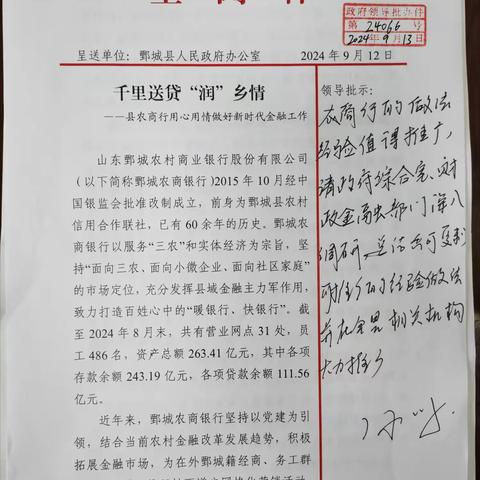 政府领导批办件
第 24066 号
2024年9月13日
呈送单位：鄄城县人民政府办公室 2024年9月12日
千里送贷“润”乡情
——县农商行用心用情做好新时代金融工作
山东鄄城农村商业银行股份有限公司
（以下简称鄄城农商银行）2015年10月经中
国银监会批准改制成立，前身为鄄城县农村
信用合作联社，已有60余年的历史。鄄城农
商银行以服务“三农”和实体经济为宗旨，坚
持“面向三农、面向小微企业、面向社区家庭”
的市场定位，充分发挥县域金融主力军作用，
致力打造百姓心中的“暖银行、快银行”。截
至2024年8月末，共有营业网点31处，员
工486名，资产总额263.41亿元，其中各项
存款余额243.19亿元，各项贷款余额111.56
亿元。
近年来，鄄城农商银行坚持以党建为引
领，结合当前农村金融改革发展趋势，积极
拓展金融市场，为在外鄄城籍经商、务工群
领导批示：
农商行的做法
经验值得推广，
请政府综合室、财
政金融部门深入
调研，总结出可复制
可推行的经验做法
并在全县相关机构
大力推行